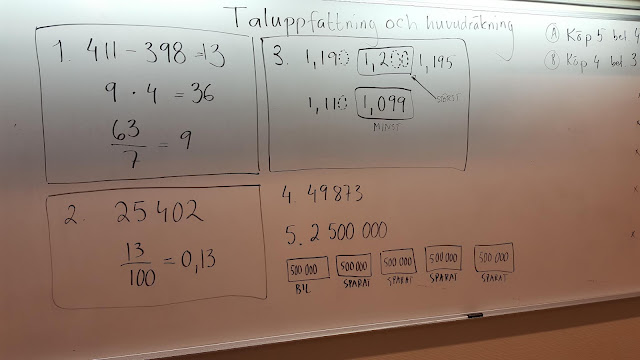 Taluppfattning och huvudräkning
1. 411 - 398 = 13
9 · 4 = 36
63/7 = 9
2. 25 402
13/100 = 0,13
3. 1,190 1,200 1,195
STÖRST
1,110 1,099
MINST
4. 49873
5. 2 500 000
500 000 500 000 500 000 500 000 500 000
BIL SPARAT SPARAT SPARAT SPARAT
A Köp 5 bet 4
B Köp 4 bet 3